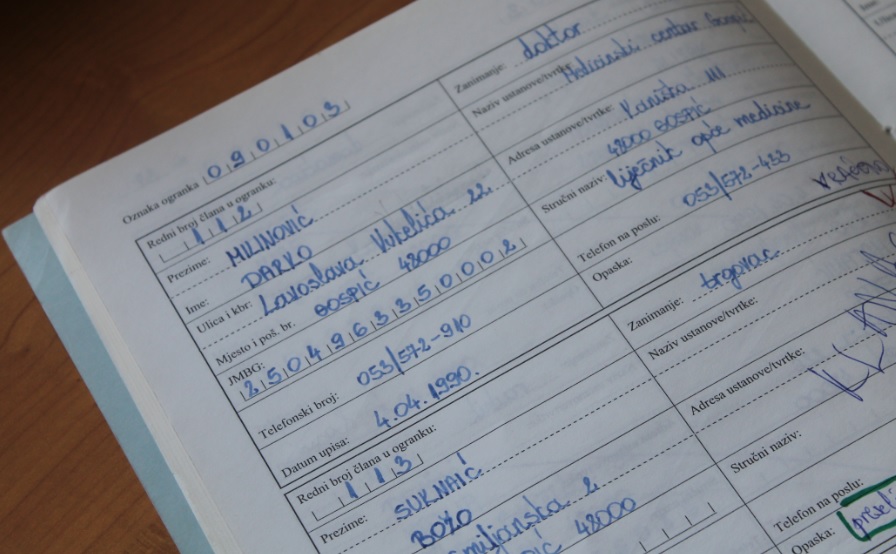 Oznaka ogranka 090103
Redni broj člana u ogranku:
112
Prezime: MILINOVIĆ
Ime: DARKO
Ulica i kbr: Lavoslava Vukelića 22
Mjesto i poš. br. GOSPIĆ 48000
JMBG:
2504963350002
Telefonski broj: 053/572-910
Datum upisa: 4.04.1990.
Zanimanje: doktor
Naziv ustanove/tvrtke: Medicinski centar Gospić
Adresa ustanove/tvrtke: Kanička
48000 GOSPIĆ
Stručni naziv: liječnik opće medicine
Telefon na poslu: 053/572-433
Opaska:
Redni broj člana u ogranku:
113
Prezime: SUKNAIĆ
BOŽO
Smiljanska 2
48000
Zanimanje: trgovac
Naziv ustanove/tvrtke:
Adresa ustanove/tvrtke:
Stručni naziv:
Telefon na poslu:
Opaska: